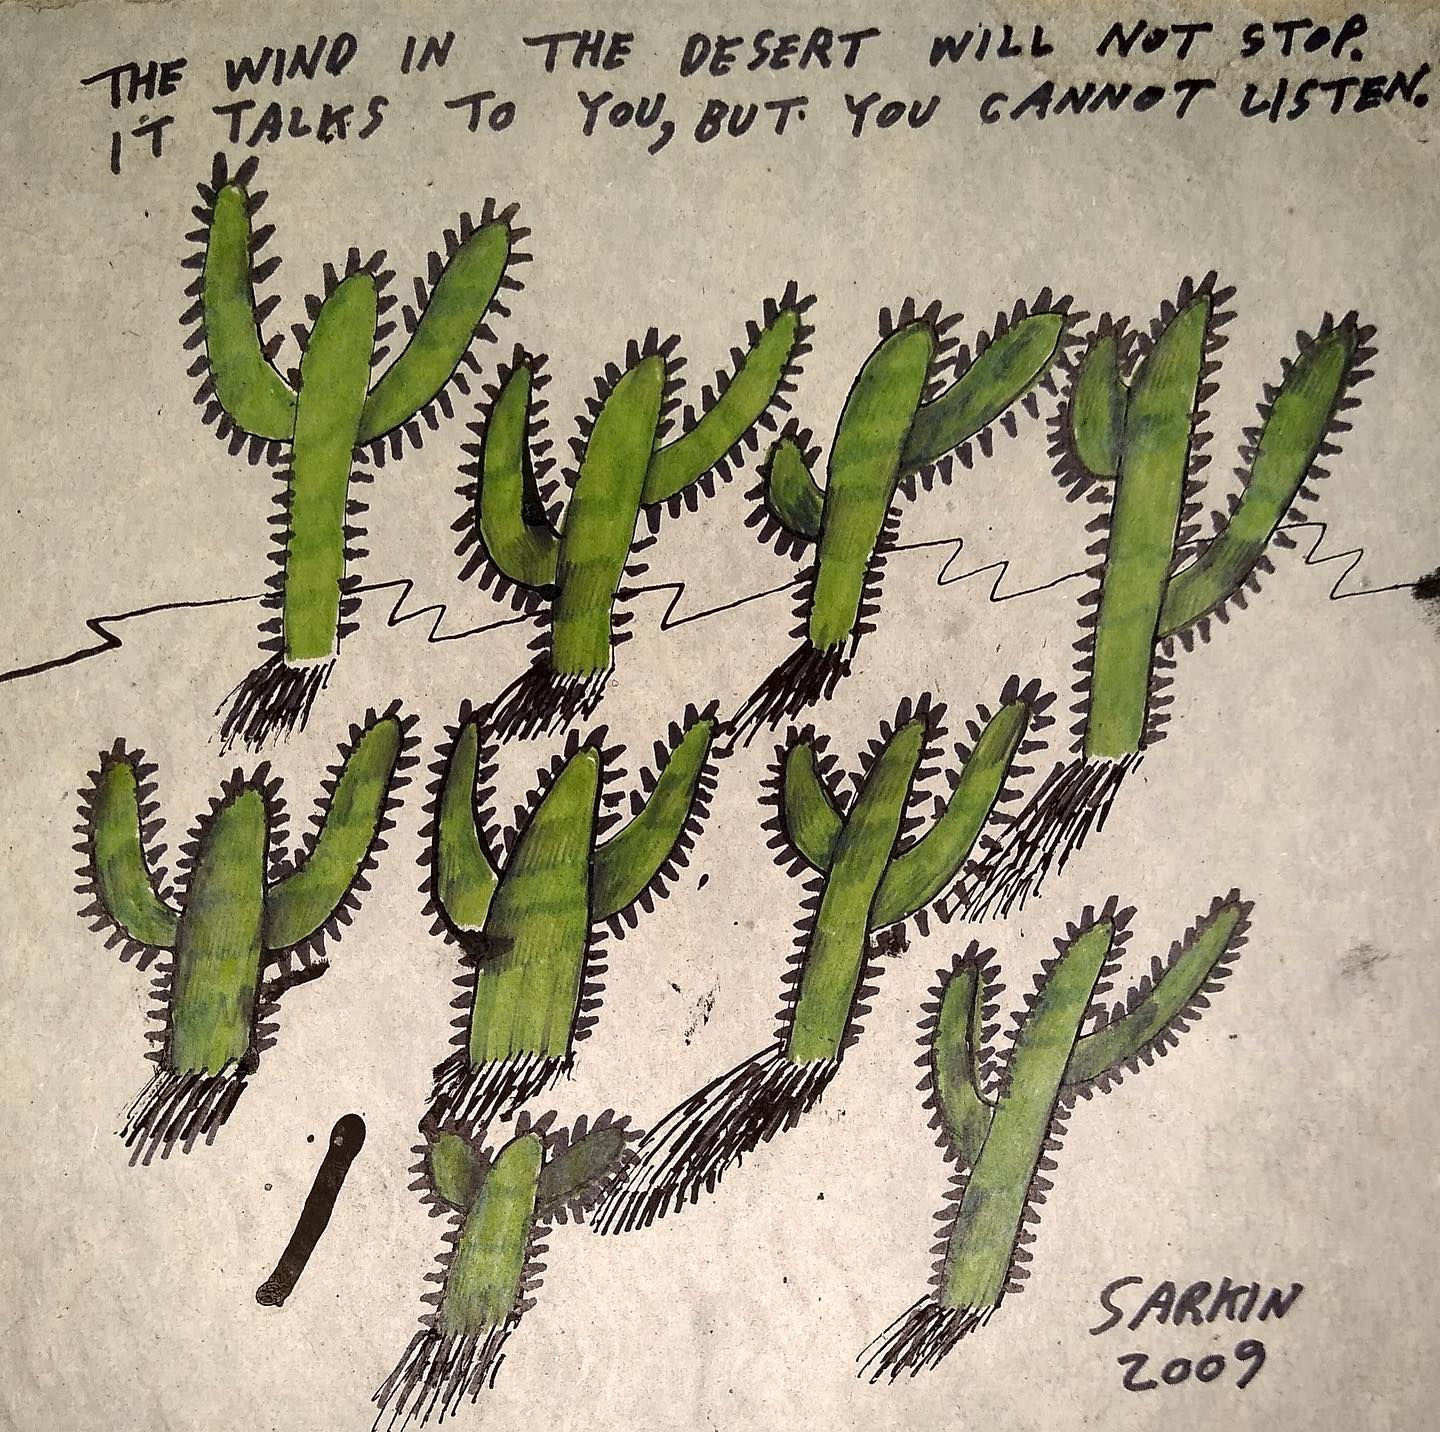 THE WIND IN THE DESERT WILL NOT STOP.
IT TALKS TO YOU, BUT YOU CANNOT LISTEN.
SARKIN
2009